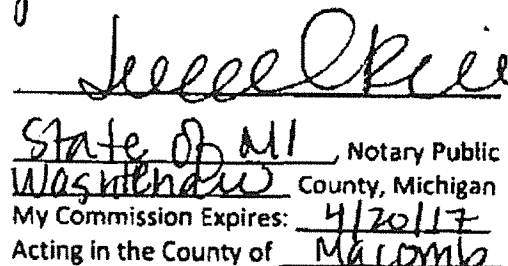 State of MI, Notary Public
Washtenaw County, Michigan
My Commission Expires: 4/20/17
Acting in the County of Macomb